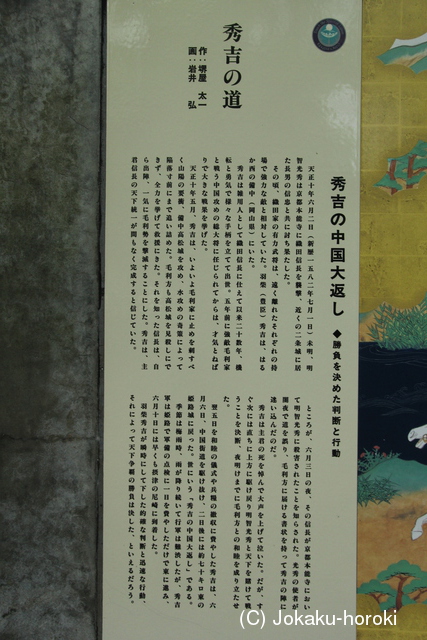 秀吉の道
作：堺屋　太一
画：岩井　弘
秀吉の中国大返し　◆勝負を決めた判断と行動
天正十年六月二日（新暦一五八二年七月一日）未明、明
智光秀は京都本能寺に織田信長を襲撃、近くの二条城に居
た長男の信忠と共に討ち果たした。
その頃、織田家の有力武将は、遠く離れたそれぞれの持
場で強力な敵と相対していた。羽柴（豊臣）秀吉は、はる
か西の備中（岡山県）にいた。
秀吉は雑用人として織田信長に仕えて以来二十数年、機
転と勇気で様々な手柄を立てて出世。五年前に強敵毛利家
と戦う中国攻めの総大将に任じられてからは、才気とねば
りで大きな戦果を挙げた。
天正十年五月、秀吉は、いよいよ毛利家に止めを刺すべ
く山陽の要衝、備中高松城を攻め、水攻めの奇策によって
陥落寸前にまで追い詰めた。毛利方も高松城を見殺しにで
きず、全力を挙げて救援にきた。それを知った信長は、自
ら出陣、一気に毛利勢を撃滅することにした。秀吉は、主
君信長の天下統一が間もなく完成すると信じていた。
ところが、六月三日の夜、その信長が京都本能寺におい
て明智光秀に殺害されたことを知らされた。光秀の使者が
闇夜で道を誤り、毛利方に届ける書状を持って秀吉の陣に
迷い込んだのだ。
秀吉は主君の死を悼んで大声を上げて泣いた。だが、す
ぐ次には直ちに上方に駆け戻り明智光秀と天下を賭けて戦
うことを決断、夜明けまでに毛利方との和睦を成り立たせ
た。
翌五日を和睦の儀式や兵糧の撤収に費やした秀吉は、六
月六日、中国街道を駆け抜け、二日後には約七十キロ東の
姫路城に戻った。世にいう「秀吉の中国大返し」である。
季節は梅雨時、雨が降り続いて行軍は難渋したが、秀吉
軍は姫路で軍備の点検に一日を費やしただけで東に進み、
六月十日には早くも摂津の尼崎に到着した。
羽柴秀吉が瞬時にして下した的確な判断と迅速な行動、
それによって天下争覇の勝負は決した、といえるだろう。
(C) Jokaku-horoki